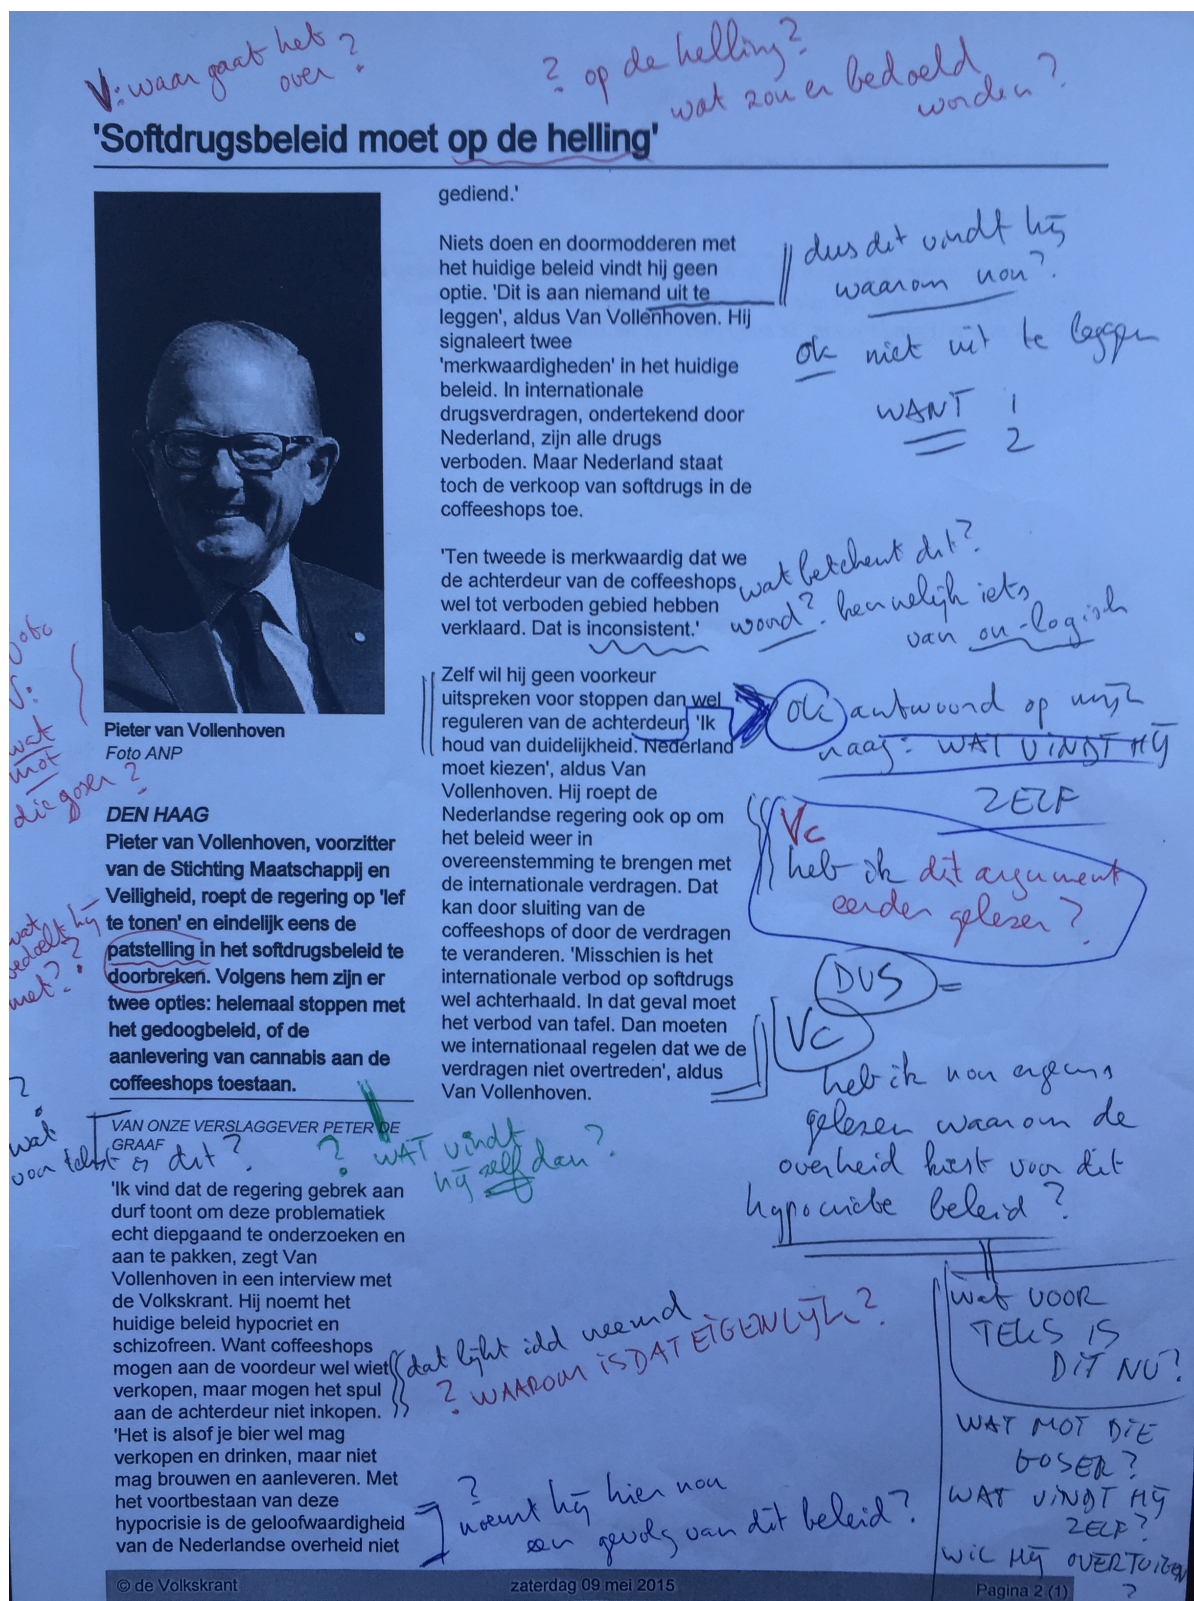 V: waar gaat het
over?
? op de helling?
wat zou er bedoeld
worden?
'Softdrugsbeleid moet op de helling'
Pieter van Vollenhoven
Foto ANP
foto
V:
wat
mot
die goser?
DEN HAAG
Pieter van Vollenhoven, voorzitter
van de Stichting Maatschappij en
Veiligheid, roept de regering op 'lef
te tonen' en eindelijk eens de
patstelling in het softdrugsbeleid te
doorbreken. Volgens hem zijn er
twee opties: helemaal stoppen met
het gedoogbeleid, of de
aanlevering van cannabis aan de
coffeeshops toestaan.
wat
bedoelt hij
met??
VAN ONZE VERSLAGGEVER PETER DE
GRAAF
?
wat
voor tekst is dit?
? WAT vindt
hij zelf dan?
'Ik vind dat de regering gebrek aan
durf toont om deze problematiek
echt diepgaand te onderzoeken en
aan te pakken, zegt Van
Vollenhoven in een interview met
de Volkskrant. Hij noemt het
huidige beleid hypocriet en
schizofreen. Want coffeeshops
mogen aan de voordeur wel wiet
verkopen, maar mogen het spul
aan de achterdeur niet inkopen.
'Het is alsof je bier wel mag
verkopen en drinken, maar niet
mag brouwen en aanleveren. Met
het voortbestaan van deze
hypocrisie is de geloofwaardigheid
van de Nederlandse overheid niet
dat lijkt idd vreemd
? WAAROM IS DAT EIGENLIJK?
?
noemt hij hier nou
een gevolg van dit beleid?
gediend.'
Niets doen en doormodderen met
het huidige beleid vindt hij geen
optie. 'Dit is aan niemand uit te
leggen', aldus Van Vollenhoven. Hij
signaleert twee
'merkwaardigheden' in het huidige
beleid. In internationale
drugsverdragen, ondertekend door
Nederland, zijn alle drugs
verboden. Maar Nederland staat
toch de verkoop van softdrugs in de
coffeeshops toe.
'Ten tweede is merkwaardig dat we
de achterdeur van de coffeeshops
wel tot verboden gebied hebben
verklaard. Dat is inconsistent.'
Zelf wil hij geen voorkeur
uitspreken voor stoppen dan wel
reguleren van de achterdeur. 'Ik
houd van duidelijkheid. Nederland
moet kiezen', aldus Van
Vollenhoven. Hij roept de
Nederlandse regering ook op om
het beleid weer in
overeenstemming te brengen met
de internationale verdragen. Dat
kan door sluiting van de
coffeeshops of door de verdragen
te veranderen. 'Misschien is het
internationale verbod op softdrugs
wel achterhaald. In dat geval moet
het verbod van tafel. Dan moeten
we internationaal regelen dat we de
verdragen niet overtreden', aldus
Van Vollenhoven.
dus dit vindt hij
waarom nou?
ok niet uit te leggen
WANT 1
2
wat betekent dit?
woord? kennelijk iets
van on-logisch
ok antwoord op mijn
vraag: WAT VINDT HIJ
ZELF
Vc
heb ik dit argument
eerder gelezen?
DUS =
Vc
heb ik nou ergens
gelezen waarom de
overheid kiest voor dit
hypocriete beleid?
Wat VOOR
TEKS IS
DIT NU?
WAT MOT DIE
GOSER?
WAT VINDT HIJ
ZELF?
WIL HIJ OVERTUIGEN
?
© de Volkskrant
zaterdag 09 mei 2015
Pagina 2 (1)